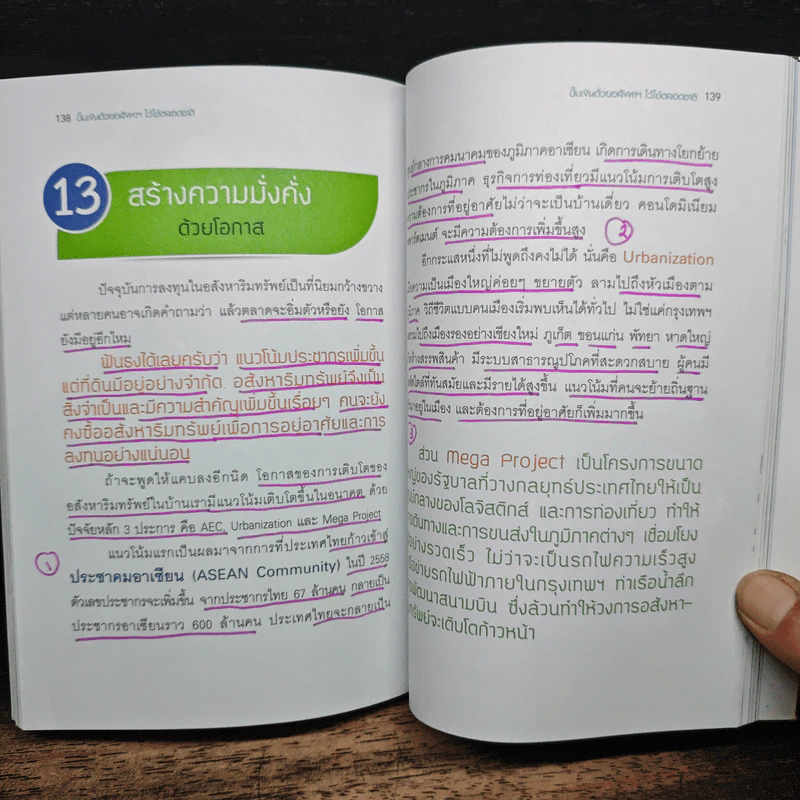 138 ปั๊มเงินด้วยอสังหาฯ ไว้ใช้ตลอดชาติ
13
สร้างความมั่งคั่ง
ด้วยโอกาส
ปัจจุบันการลงทุนในอสังหาริมทรัพย์เป็นที่นิยมกว้างขวาง
แต่หลายคนอาจเกิดคำถามว่า แล้วตลาดจะอิ่มตัวหรือยัง โอกาส
ยังมีอยู่อีกไหม
ฟันธงได้เลยครับว่า แนวโน้มประชากรเพิ่มขึ้น
แต่ที่ดินมีอยู่อย่างจำกัด อสังหาริมทรัพย์จึงเป็น
สิ่งจำเป็นและมีความสำคัญเพิ่มขึ้นเรื่อยๆ คนจะยัง
คงซื้ออสังหาริมทรัพย์เพื่อการอยู่อาศัยและการ
ลงทุนอย่างแน่นอน
ถ้าจะพูดให้แคบลงอีกนิด โอกาสของการเติบโตของ
อสังหาริมทรัพย์ในบ้านเรามีแนวโน้มเติบโตขึ้นในอนาคต ด้วย
ปัจจัยหลัก 3 ประการ คือ AEC, Urbanization และ Mega Project
แนวโน้มแรกเป็นผลมาจากการที่ประเทศไทยก้าวเข้าสู่
1
ประชาคมอาเซียน (ASEAN Community) ในปี 2558
ตัวเลขประชากรจะเพิ่มขึ้น จากประชากรไทย 67 ล้านคน กลายเป็น
ประชากรอาเซียนราว 600 ล้านคน ประเทศไทยจะกลายเป็น
ปั๊มเงินด้วยอสังหาฯ ไว้ใช้ตลอดชาติ 139
การคมนาคมของภูมิภาคอาเซียน เกิดการเดินทางโยกย้าย
ประชากรในภูมิภาค ธุรกิจการท่องเที่ยวมีแนวโน้มการเติบโตสูง
ความต้องการที่อยู่อาศัยไม่ว่าจะเป็นบ้านเดี่ยว คอนโดมิเนียม
จะมีความต้องการเพิ่มขึ้นสูง
2
อีกกระแสหนึ่งที่ไม่พูดถึงคงไม่ได้ นั่นคือ Urbanization
ความเป็นเมืองใหญ่ค่อยๆ ขยายตัว ลามไปถึงหัวเมืองตาม
วิถีชีวิตแบบคนเมืองเริ่มพบเห็นได้ทั่วไป ไม่ใช่แค่กรุงเทพฯ
ไปถึงเมืองรองอย่างเชียงใหม่ ภูเก็ต ขอนแก่น พัทยา หาดใหญ่
ห้างสรรพสินค้า มีระบบสาธารณูปโภคที่สะดวกสบาย ผู้คนมี
ที่ทันสมัยและมีรายได้สูงขึ้น แนวโน้มที่คนจะย้ายถิ่นฐาน
มาอยู่ในเมือง และต้องการที่อยู่อาศัยก็เพิ่มมากขึ้น
3
ส่วน Mega Project เป็นโครงการขนาด
ใหญ่ของรัฐบาลที่วางกลยุทธ์ประเทศไทยให้เป็น
ศูนย์กลางของโลจิสติกส์ และการท่องเที่ยว ทำให้
การเดินทางและการขนส่งในภูมิภาคต่างๆ เชื่อมโยง
อย่างรวดเร็ว ไม่ว่าจะเป็นรถไฟความเร็วสูง
รถไฟฟ้าภายในกรุงเทพฯ ท่าเรือน้ำลึก
การพัฒนาสนามบิน ซึ่งล้วนทำให้วงการอสังหา-
ริมทรัพย์จะเติบโตก้าวหน้า